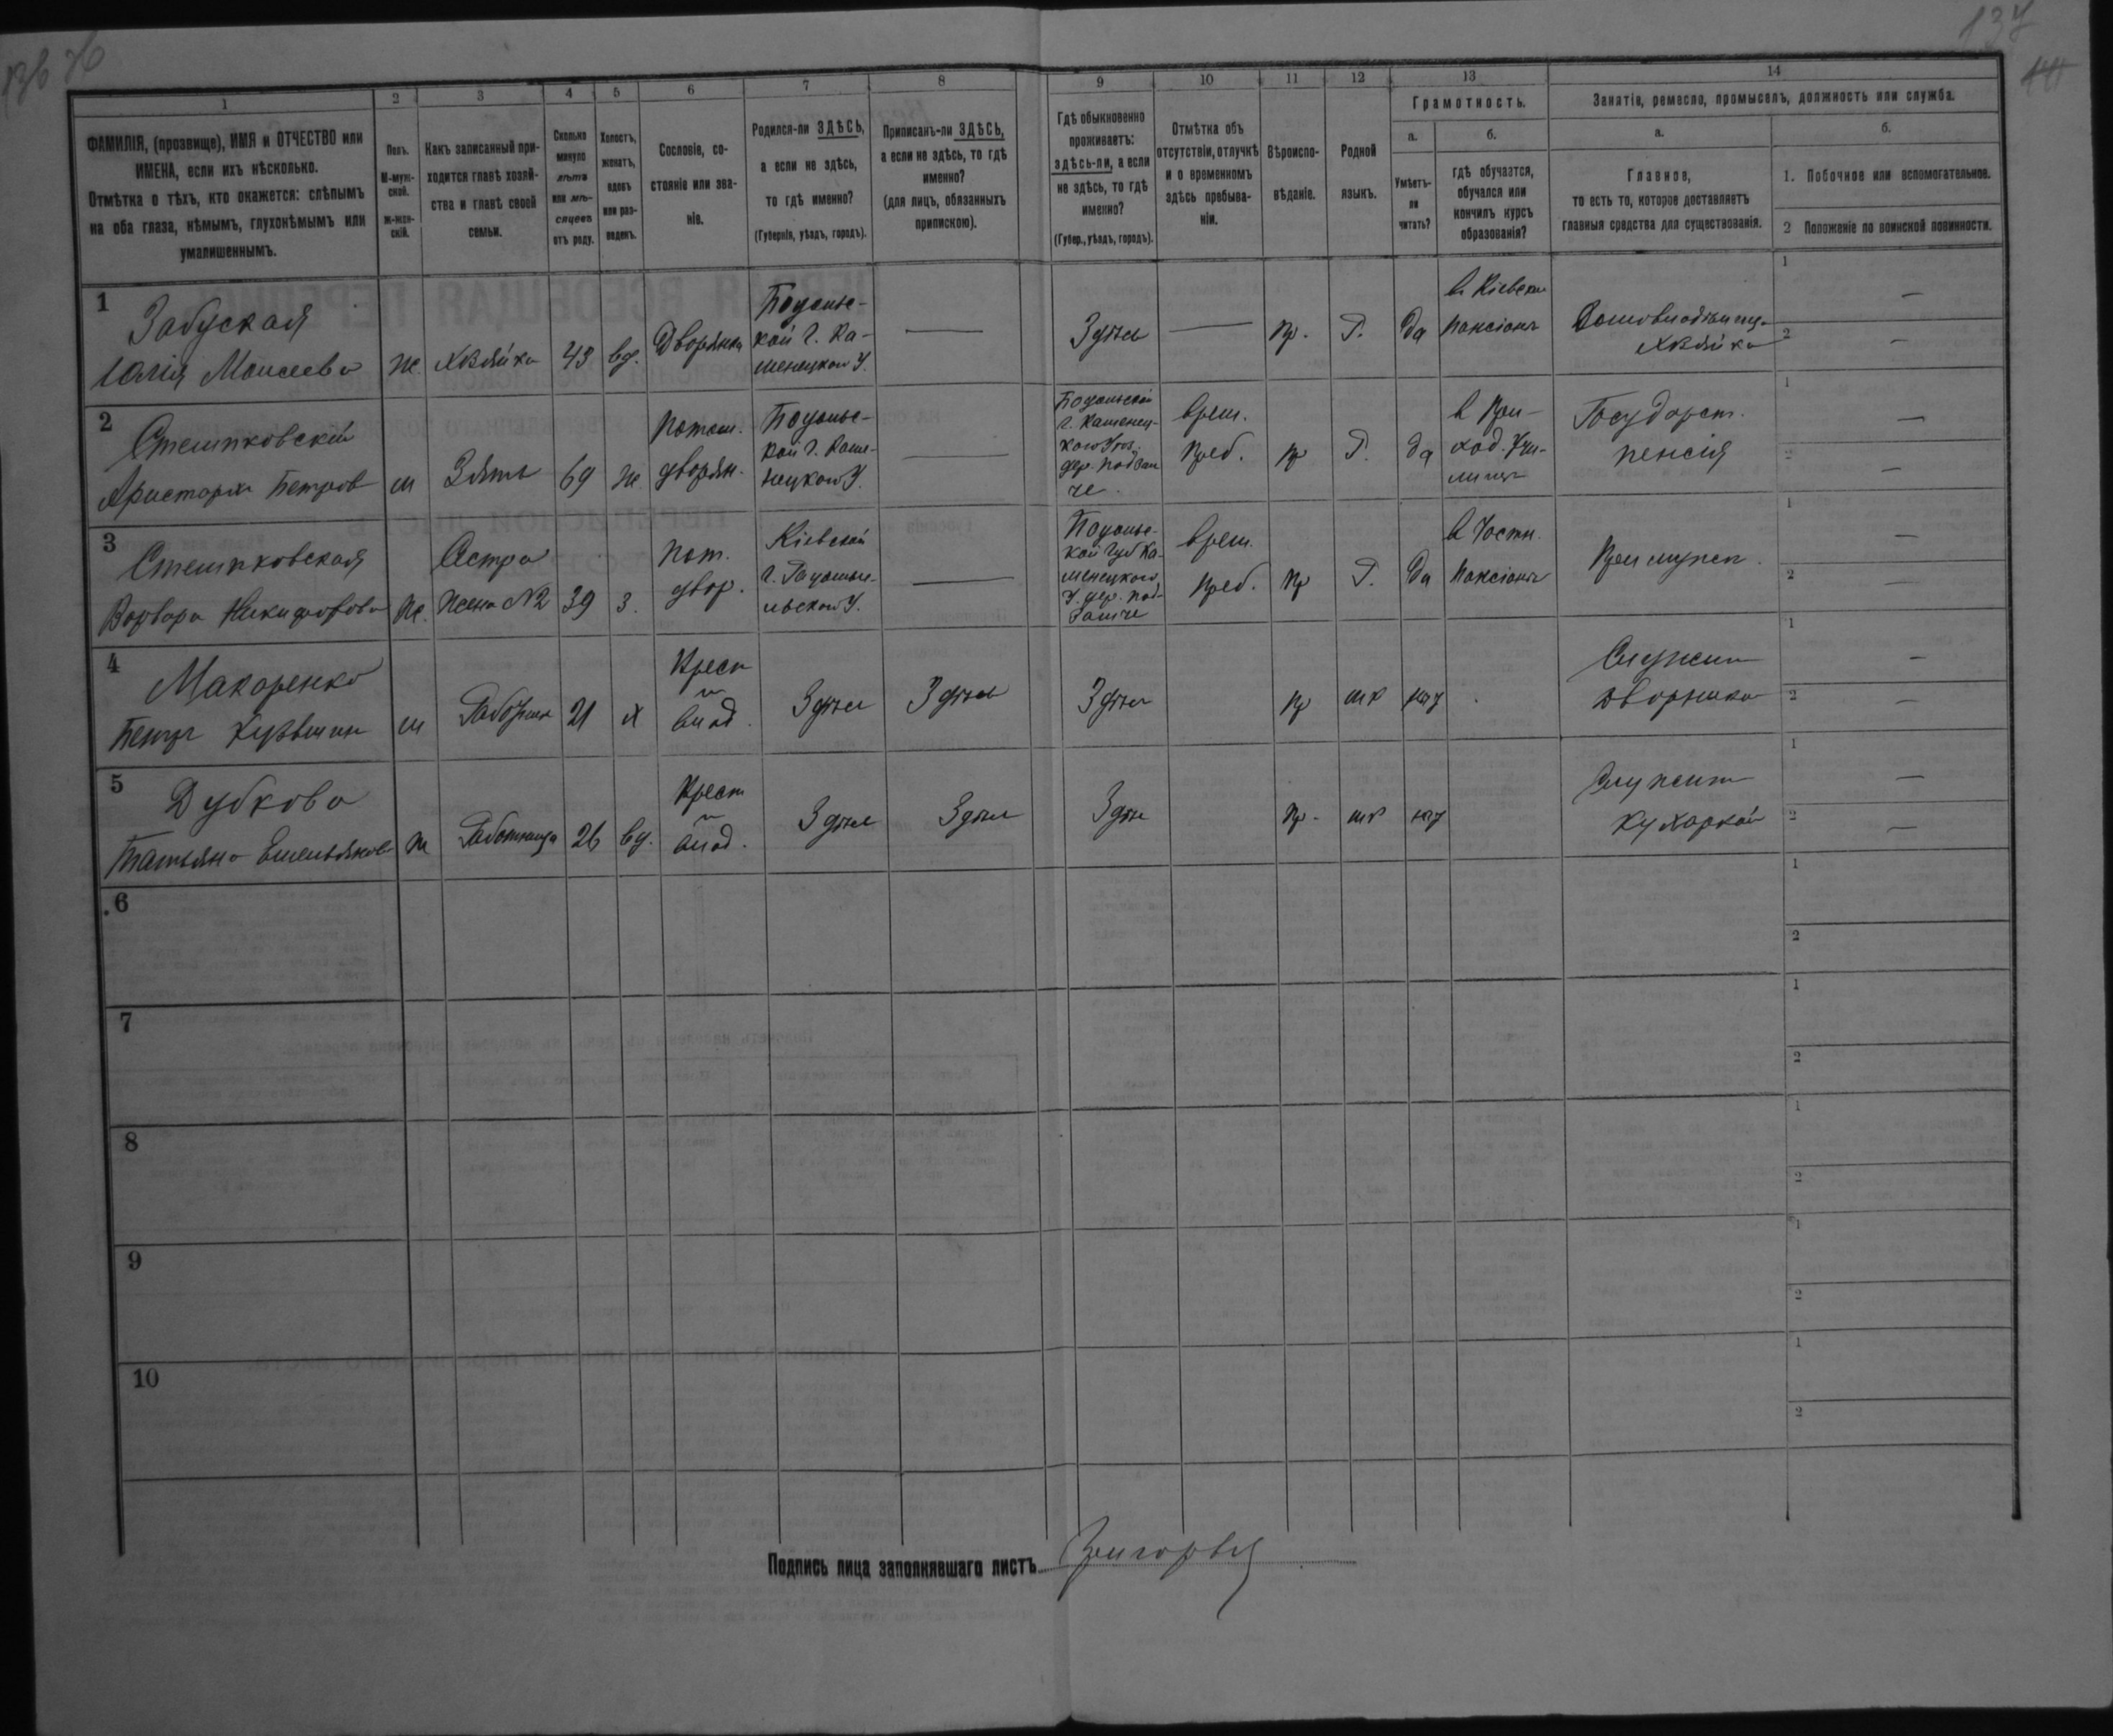 136 76
137
1
2
3
4
5
6
7
8
9
10
11
12
13
14
ФАМИЛІЯ, (прозвище), ИМЯ и ОТЧЕСТВО или
ИМЕНА, если ихъ нѣсколько.
Отмѣтка о тѣхъ, кто окажется: слѣпымъ
на оба глаза, нѣмымъ, глухонѣмымъ или
умалишеннымъ.
Полъ.
М-муж-
ской.
ж-жен-
скій.
Какъ записанный при-
ходится главѣ хозяй-
ства и главѣ своей
семьи.
Сколько
минуло
лѣтъ
или мѣ-
сяцевъ
отъ роду.
Холостъ,
женатъ,
вдовъ
или раз-
веденъ.
Сословіе, со-
стояніе или зва-
ніе.
Родился-ли ЗДѢСЬ,
а если не здѣсь,
то гдѣ именно?
(Губернія, уѣздъ, городъ).
Приписанъ-ли ЗДѢСЬ,
а если не здѣсь, то гдѣ
именно?
(для лицъ, обязанныхъ
припискою).
Гдѣ обыкновенно
проживаетъ:
здѣсь-ли, а если
не здѣсь, то гдѣ
именно?
(Губер., уѣздъ, городъ).
Отмѣтка объ
отсутствіи, отлучкѣ
и о временномъ
здѣсь пребыва-
ніи.
Вѣроиспо-
вѣданіе.
Родной
языкъ.
Грамотность.
а.
Умѣетъ-
ли
читать?
б.
гдѣ обучается,
обучался или
кончилъ курсъ
образованія?
Занятіе, ремесло, промыселъ, должность или служба.
а.
Главное,
то есть то, которое доставляетъ
главныя средства для существованія.
б.
1. Побочное или вспомогательное.
2 Положеніе по воинской повинности.
1
Забуская
Юлія Моисеева
ж.
хозяйка
43
вд.
Дворянка
Подольс-
кой г. Ка-
менецкого У.
—
Здѣсь
—
пр.
Р.
да
в Кіевском
пансіонѣ
Домовладѣлица
хозяйка
1 —
2 —
2
Стемпковскій
Аристархъ Петров
м
Зять
69
ж.
Потом.
дворян.
Подольс-
кой г. Каме-
нецкого У.
—
Подольской
г. Каменец-
кого Уѣз.
дер. Подзам
че.
врем.
преб.
пр
Р.
да
в При-
ход. Учи-
лищѣ
Государст.
пенсія
1 —
2 —
3
Стемпковская
Варвара Никифорова
ж.
Сестра
жена №2
39
з.
пот.
двор.
Кіевской
г. Радомы-
льского У.
—
Подольс-
кой Губ Ка-
менецкого
У. дер. Под-
замче
врем.
преб.
пр
Р.
да
в Частн.
пансіонѣ
При мужѣ
1 —
2 —
4
Макаренко
Петръ Кузьмин
м
Работник
21
х
Крест
и
влад.
Здѣсь
Здѣсь
Здѣсь
пр
мр
нѣт
Служит
дворником
1 —
2 —
5
Дубкова
Татьяна Емельянова
ж
Работница
26
вд.
Крест
и
влад.
Здѣсь
Здѣсь
Здѣсь
пр.
мр
нѣт
Служит
кухаркой
1 —
2 —
6
1
2
7
1
2
8
1
2
9
1
2
10
1
2
Подпись лица заполнявшаго листъ